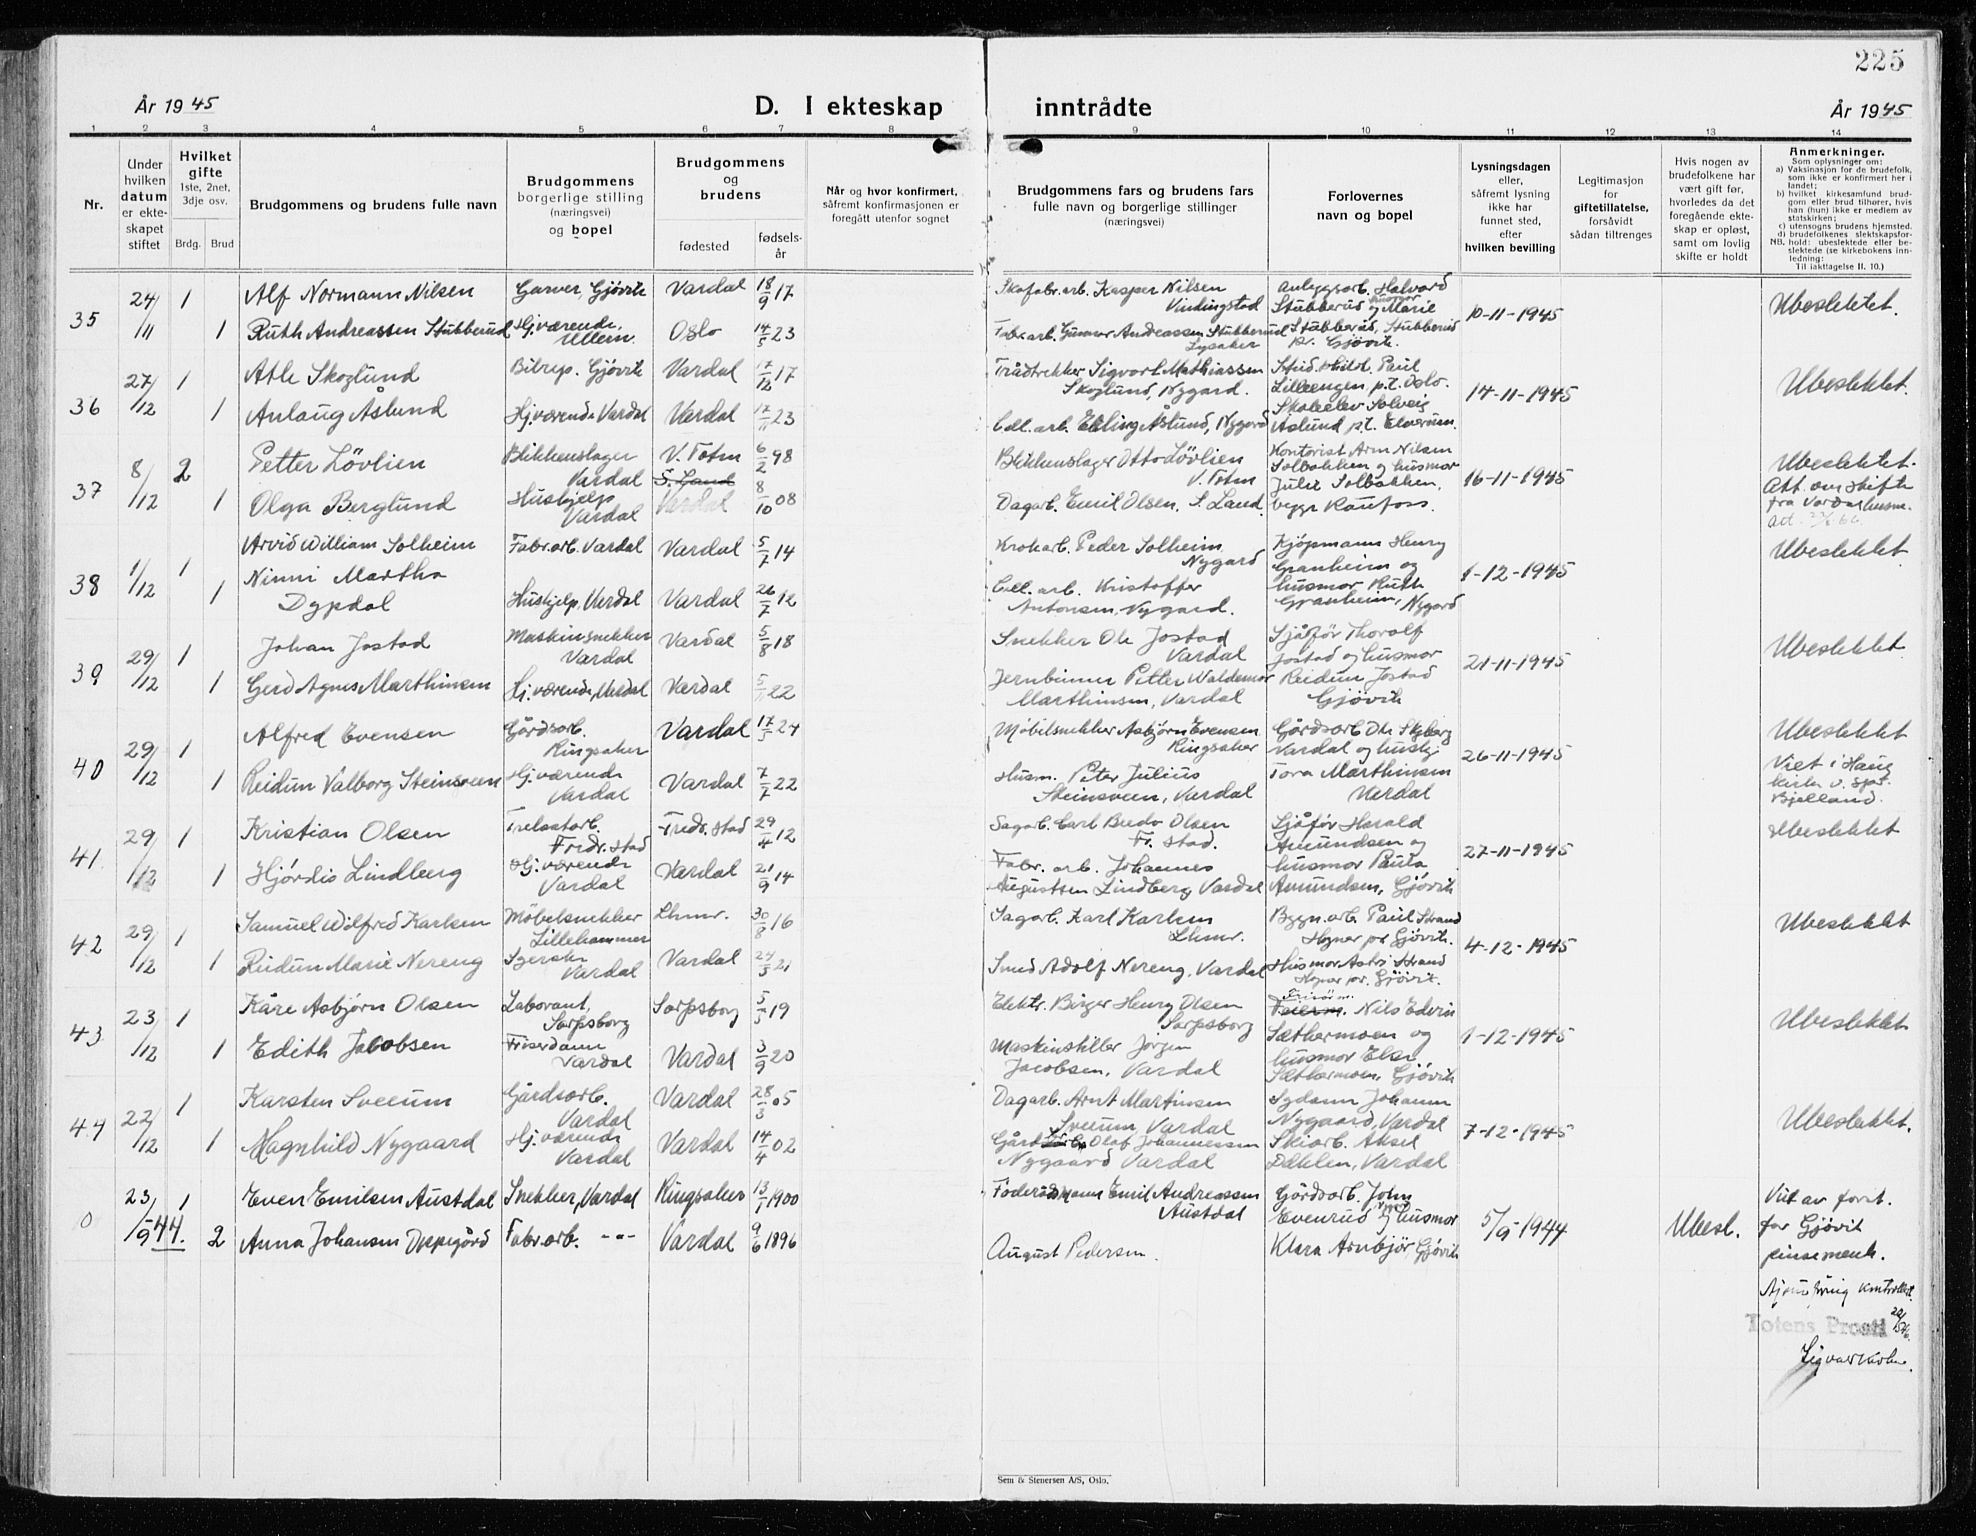 225
År 1945
D. I ekteskap inntrådte
År 1945
1 2 3 4 5 6 7 8 9 10 11 12 13 14
Nr.
Under hvilken datum er ekteskapet stiftet
Hvilket gifte
1ste, 2net, 3dje osv.
Brdg. Brud
Brudgommens og brudens fulle navn
Brudgommens
borgerlige stilling
(næringsvei)
og bopel
Brudgommens
og
brudens
fødested
fødselsår
Når og hvor konfirmert,
såfremt konfirmasjonen er
foregått utenfor sognet
Brudgommens fars og brudens fars
fulle navn og borgerlige stillinger
(næringsvei)
Forlovernes
navn og bopel
Lysningsdagen
eller,
såfremt lysning
ikke har
funnet sted,
efter
hvilken bevilling
Legitimasjon
for
giftetillatelse,
forsåvidt
sådan tiltrenges
Hvis nogen av
brudefolkene har
vært gift før,
hvorledes da det
foregående ekte-
skap er opløst,
samt om lovlig
skifte er holdt
Anmerkninger.
Som oplysninger om:
a) Vaksinasjon for de brudefolk,
som ikke er konfirmert her i
landet;
b) hvilket kirkesamfund brud-
gom eller brud tilhører, hvis
han (hun) ikke er medlem av
statskirken;
c) utensogns brudens hjemsted.
d) brudefolkenes slektskapsfor-
NB. hold: ubeslektede eller be-
slektede (se kirkebokens inn-
ledning:
Til iakttagelse II. 10.)
35 24/11 1 Alf Normann Nilsen Garver, Gjøvik Vardal 18/9 17 Skofabr.arb. Kasper Nilsen Vindingstad
1 Ruth Andreassen Stubberud Hj.værende, Ullern Oslo 14/5 23 Fabr.arb. Gunnar Andreassen Stubberud Lysaker
Anleggsarb. Halvard Stubberud og husmor Marie Stubberud, Stubberud pr. Gjøvik. 10-11-1945 Ubeslektet.
36 27/12 1 Atle Skoglund Bilrep. Gjøvik Vardal 17/12 17 Trådtrekker Sigvart Mathiassen Skoglund, Nygard.
1 Anlaug Åslund Hj.værende Vardal Vardal 17/11 23 Cell. arb. Elling Åslund, Nygard
Stud. philol. Paul Lilleengen p.t. Oslo. Skoleelev Solveig Åslund p.t. Elverum. 14-11-1945 Ubeslektet.
37 8/12 2 Petter Lövlien Blikkenslager Vardal V. Totn 6/2 98 Blikkenslager Otto Lövlien V. Totn
1 Olga Berglund Hushjelp Vardal S. Land Vardal 8/10 08 Dagarb. Emil Olsen, S. Land.
Kontorist Arn Nilsen Solbakken og husmor Julie Solbakken, begge Raufoss. 16-11-1945 Ubeslektet.
Att. om skifte fra Vardal
38 1/12 1 Arvid William Solheim Fabr.arb. Vardal Vardal 5/7 14 Krokarb. Peder Solheim Nygard
1 Ninni Martha Dypdal Hushjelp, Vardal Vardal 26/7 12 Cell. arb. Kristoffer Antonsen, Nygard.
Kjøpmann Henry Granheim og husmor Ruth Granheim, Nygard 1-12-1945 Ubeslektet
39 29/12 1 Johan Jostad Maskinsnekker Vardal Vardal 5/8 18 Snekker Ole Jostad Vardal
1 Gerd Agnes Marthinsen Hj.værende, Vardal Vardal 5/11 22 Jernbinner Petter Waldemar Marthinsen, Vardal
Sjåfør Thoralf Jostad og husmor Reidun Jostad Gjøvik 21-11-1945 Ubeslektet
40 29/12 1 Alfred Evensen Gårdsarb. Ringsaker Vardal 17/5 24 Møbelsnekker Asbjørn Evensen Ringsaker
1 Reidun Valborg Steinsveen Hj.værende Vardal Vardal 7/7 22 Husm. Peter Julius Steinsveen, Vardal
Gårdsarb. Ole Skyberg Vardal og hushj. Tora Marthinsen Vardal 26-11-1945 Ubeslektet
Viet i Haug kirke v. spr. Bjelland.
41. 29/12 1 Kristian Olsen Trelastarb. Fredr. stad Fredr. stad 29/4 12 Sagarb. Carl Bredo Olsen Fr. stad.
1 Hjördis Lindberg Hj.værende Vardal Vardal 21/9 14 Fabr. arb. Johannes Augustsen Lindberg Vardal
Sjåfør Harald Amundsen og husmor Paula Amundsen, Gjøvik 27-11-1945 Ubeslektet
42 29/12 1 Samuel Wilfred Karlsen Møbelsnekker Lillehammer Lhmr. 30/8 16 Sagarb. Karl Karlsen Lhmr.
1 Reidun Marie Nereng Syerske Vardal Vardal 24/3 21 Smed Adolf Nereng, Vardal
Bygn.arb. Paul Strand Hognar pr Gjøvik. Husmor Astri Strand Hognar pr. Gjøvik. 4-12-1945 Ubeslektet
43 23/12 1 Kåre Asbjørn Olsen Laborant, Sarpsborg Sarpsborg 5/5 19 Elektr. Birger Henry Olsen Sarpsborg
1 Edith Jacobsen Friserdame Vardal Vardal 3/9 20 Maskinstiller Jørgen Jacobsen, Vardal
Frisørm. Nils Edvin Sæthermoen og husmor Else Sæthermoen, Gjøvik 1-12-1945 Ubeslektet
44 22/12 1 Karsten Sveum Gårdsarb. Vardal Vardal 28/3 05 Dagarb. Arnt Martinsen Sveum, Vardal
1 Magnhild Nygaard Hj.værende Vardal Vardal 14/4 02 Gård Olaf Johannessen Nygaard Vardal
Sydame Johanne Nygaard, Vardal Skiarb. Aksel Dæhlen, Vardal 7-12-1945 Ubeslektet.
0 23/9-44. 1 Even Emilsen Austdal Snekker, Vardal Ringsaker 13/1 1900 Føderådmann Emil Andreassen Austdal
2 Anna Johansen Deppegård Fabr.arb. -"- Vardal 9/6 1896 August Pedersen.
Gårdsarb. John Evenrud og husmor Klara Arnbjør, Gjøvik 5/9-1944 Ubesl.
Viet av forst. for Gjøvik pinsemenh.
kontrollert.
Totens Prosti
Sem & Stenersen A/S, Oslo.